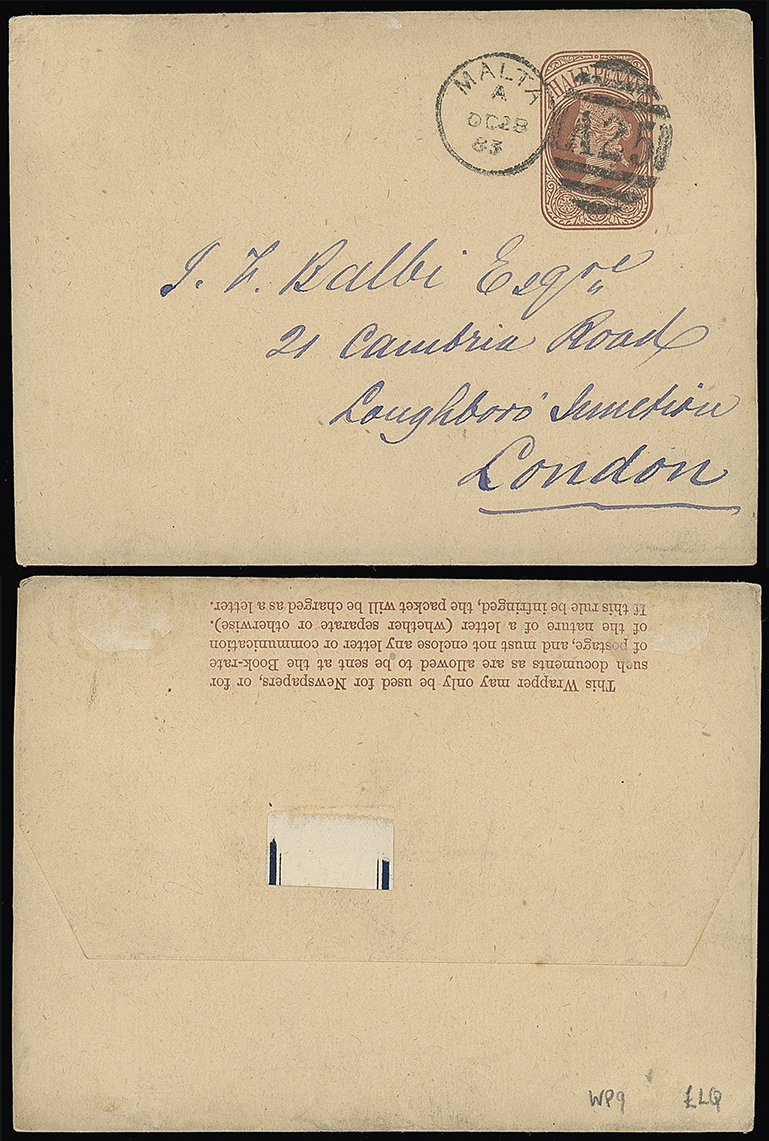 MALTA
A
DC 28
83
HALFPENNY
A25
Balbi Esqre
21 Cambria Road
Loughboro' Junction
London
This Wrapper may only be used for Newspapers, or for
such documents as are allowed to be sent at the Book-rate
of postage, and must not enclose any letter or communication
of the nature of a letter (whether separate or otherwise).
If this rule be infringed, the packet will be charged as a letter.
WP9 £LQ